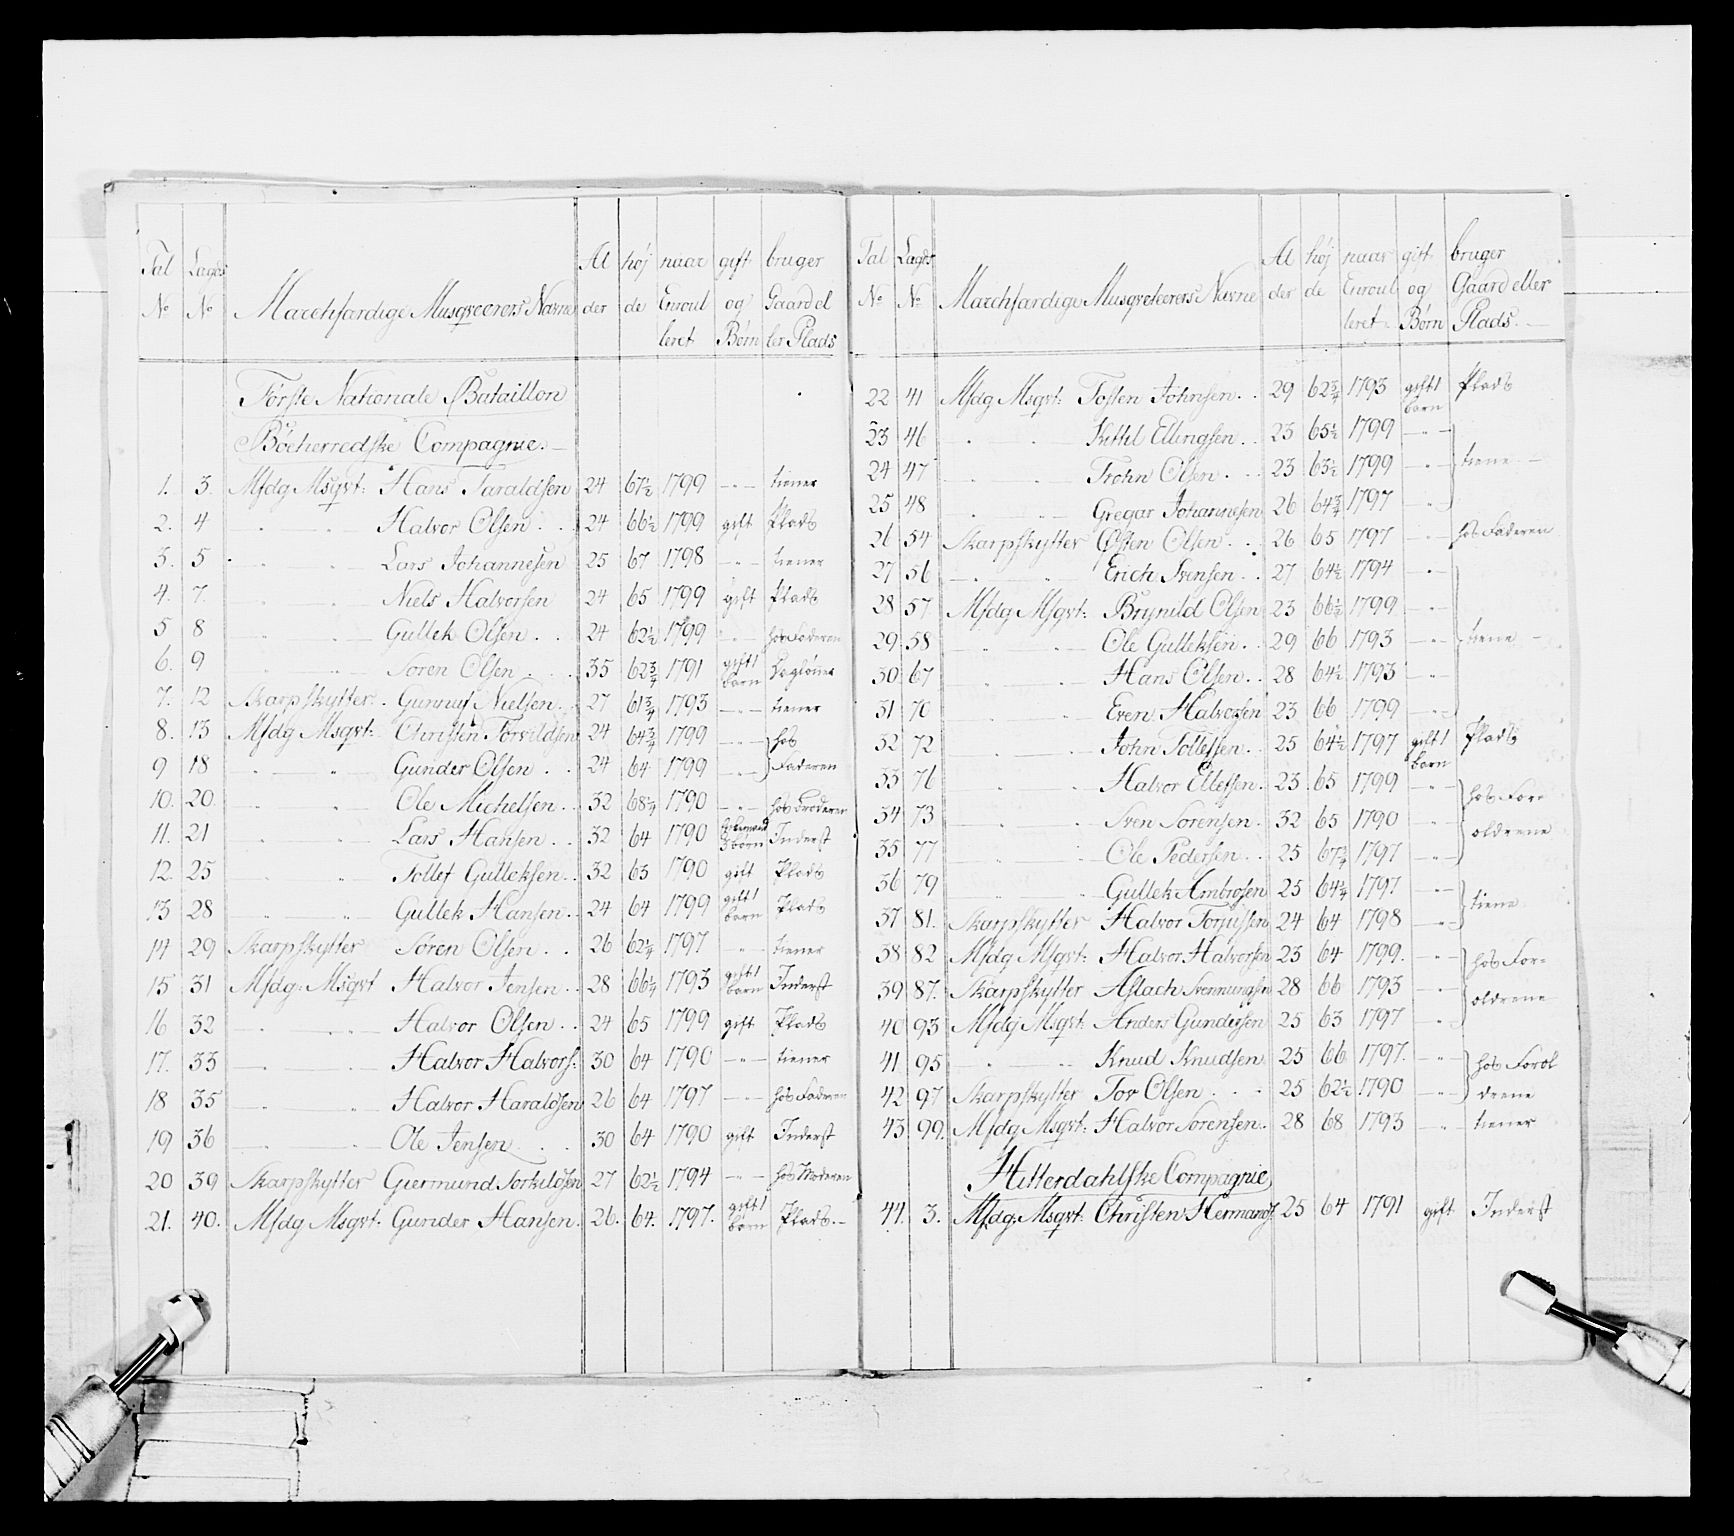 Tal No | Lagds No | Marchfærdige Musqveerers Navne | Alder | højde | naar Enroulleret | gift og Børn | bruger Gaard eller Plads
Første Nationale Bataillon
Böeherredske Compagnie.
1. 3. Mfdg Msqvt: Hans Taraldsen 24 67½ 1799 —„— tiener
2. 4 „ „ Halvor Olsen 24 66½ 1799 gift Plads
3. 5 „ „ Lars Johannesen 25 67 1798 —„— tiener
4. 7. „ „ Niels Halvorsen 24 65 1799 gift Plads
5 8 „ „ Gullek Olsen 24 62½ 1799 „ hos Faderen
6. 9 „ „ Søren Olsen 35 62¾ 1791 gift 1 barn Dagløner
7. 12 Skarpskytter Gunnuf Nielsen 27 61¾ 1793 —„— tiener
8. 13 Mfdg Msqvt: Christen Torvildsen 24 64¾ 1799 —„— } hos
9 18 „ „ Gunder Olsen 24 64 1799 —„— } Faderen
10. 20 „ „ Ole Michelsen 32 68¼ 1790 —„— hos Broderen
11. 21 „ „ Lars Hansen 32 64 1790 3 børn Inderst
12. 25 „ „ Tollef Golleksen 32 63 1790 gift Plads
13 28 „ „ Gullek Hansen 24 64 1799 gift 1 barn Plads
14 29 Skarpskytter Søren Olsen 26 62¼ 1797 „ tiener
15 31 Mfdg: Msqvt Halvor Jensen 28 66¼ 1793 gift 1 barn Inderst
16 32 „ „ Halvor Olsen 24 65 1799 gift Plads
17. 33 „ „ Halvor Halvors: 30 64 1790 —„— tiener
18 35 „ „ Halvor Haraldsen 26 64 1797 —„— hos Faderen
19 36 „ „ Ole Jensen 30 64 1790 gift Inderst
20 39 Skarpskytter Giermund Torkildsen 27 62½ 1794 —„— hos Moderen
21. 40. Mfdg Msqvt: Gunder Hansen 26. 64. 1797. gift 1 barn Plads.—
Tal No | Lagds No | Marchfærdige Musqveteerers Navne | Alder | højde | naar Enroulleret | gift og Børn | bruger Gaard eller Plads.
22 41 Mfdg Msqvt: Tosten Johnsen 29 62¾ 1793 gift 1 barn Plads
23 46 „ „ Kittil Ellingsen 23 65½ 1799 —„— }
24 47 „ „ Trohn Olsen 23 63½ 1799 „ } tiene
25 48 „ „ Gregar Johannesen 26 64¾ 1797 „ }
26 54 Skarpskytter Østen Olsen 26 65 1797 —„— hos Faderen
27 56 „ „ Erich Svensen 27 64½ 1794 —„— }
28 57. Mfdg Msqvt: Brynild Olsen 23 66½ 1799 —„—
29. 58 „ „ Ole Gulleksen 29 66 1793 —„— } tiene
30 67 „ „ Hans Olsen 28 64½ 1793 —„—
31 70 „ „ Even Halvorsen 23 66 1799 —„— }
32 72 „ „ John Tollefsen 25 64½ 1797 gift 1 barn Plads
33 76 „ „ Halvor Ellefsen 23 65 1799 —„— } hos For=
34 73 „ „ Sven Sørensen 32 65 1790 —„— } ældrene
35 77 „ „ Ole Pedersen 25 67¾ 1797 —„— }
36 79 „ „ Gullek Ambrosen 25 64¾ 1797 —„— } tiene
37 81. Skarpskytter Halvor Torjussen 24 64 1798 „ }
38 82 Mfdg Msqvt: Halvor Halvorsen 23 64 1799. —„— } hos For=
39 87. Skarpskytter Aslach Svennungsen 28 66 1793 —„— } ældrene
40 93 Mfdg Msqvt: Anders Gundersen 25 63 1797 „ }
41. 95 „ „ Knud Knudsen 25 66 1797. —„— } hos Foræl
42 97 Skarpskytter Tov Olsen 25 62½ 1790 —„— } drene
43 99. Mfdg Msqvt: Halvor Sørensen 28 68 1793 „ tiener
Hitterdahlske Compagnie
44. 3. Mfdg: Msqvt: Christen Hermands: 25 64 1791 gift Inderst